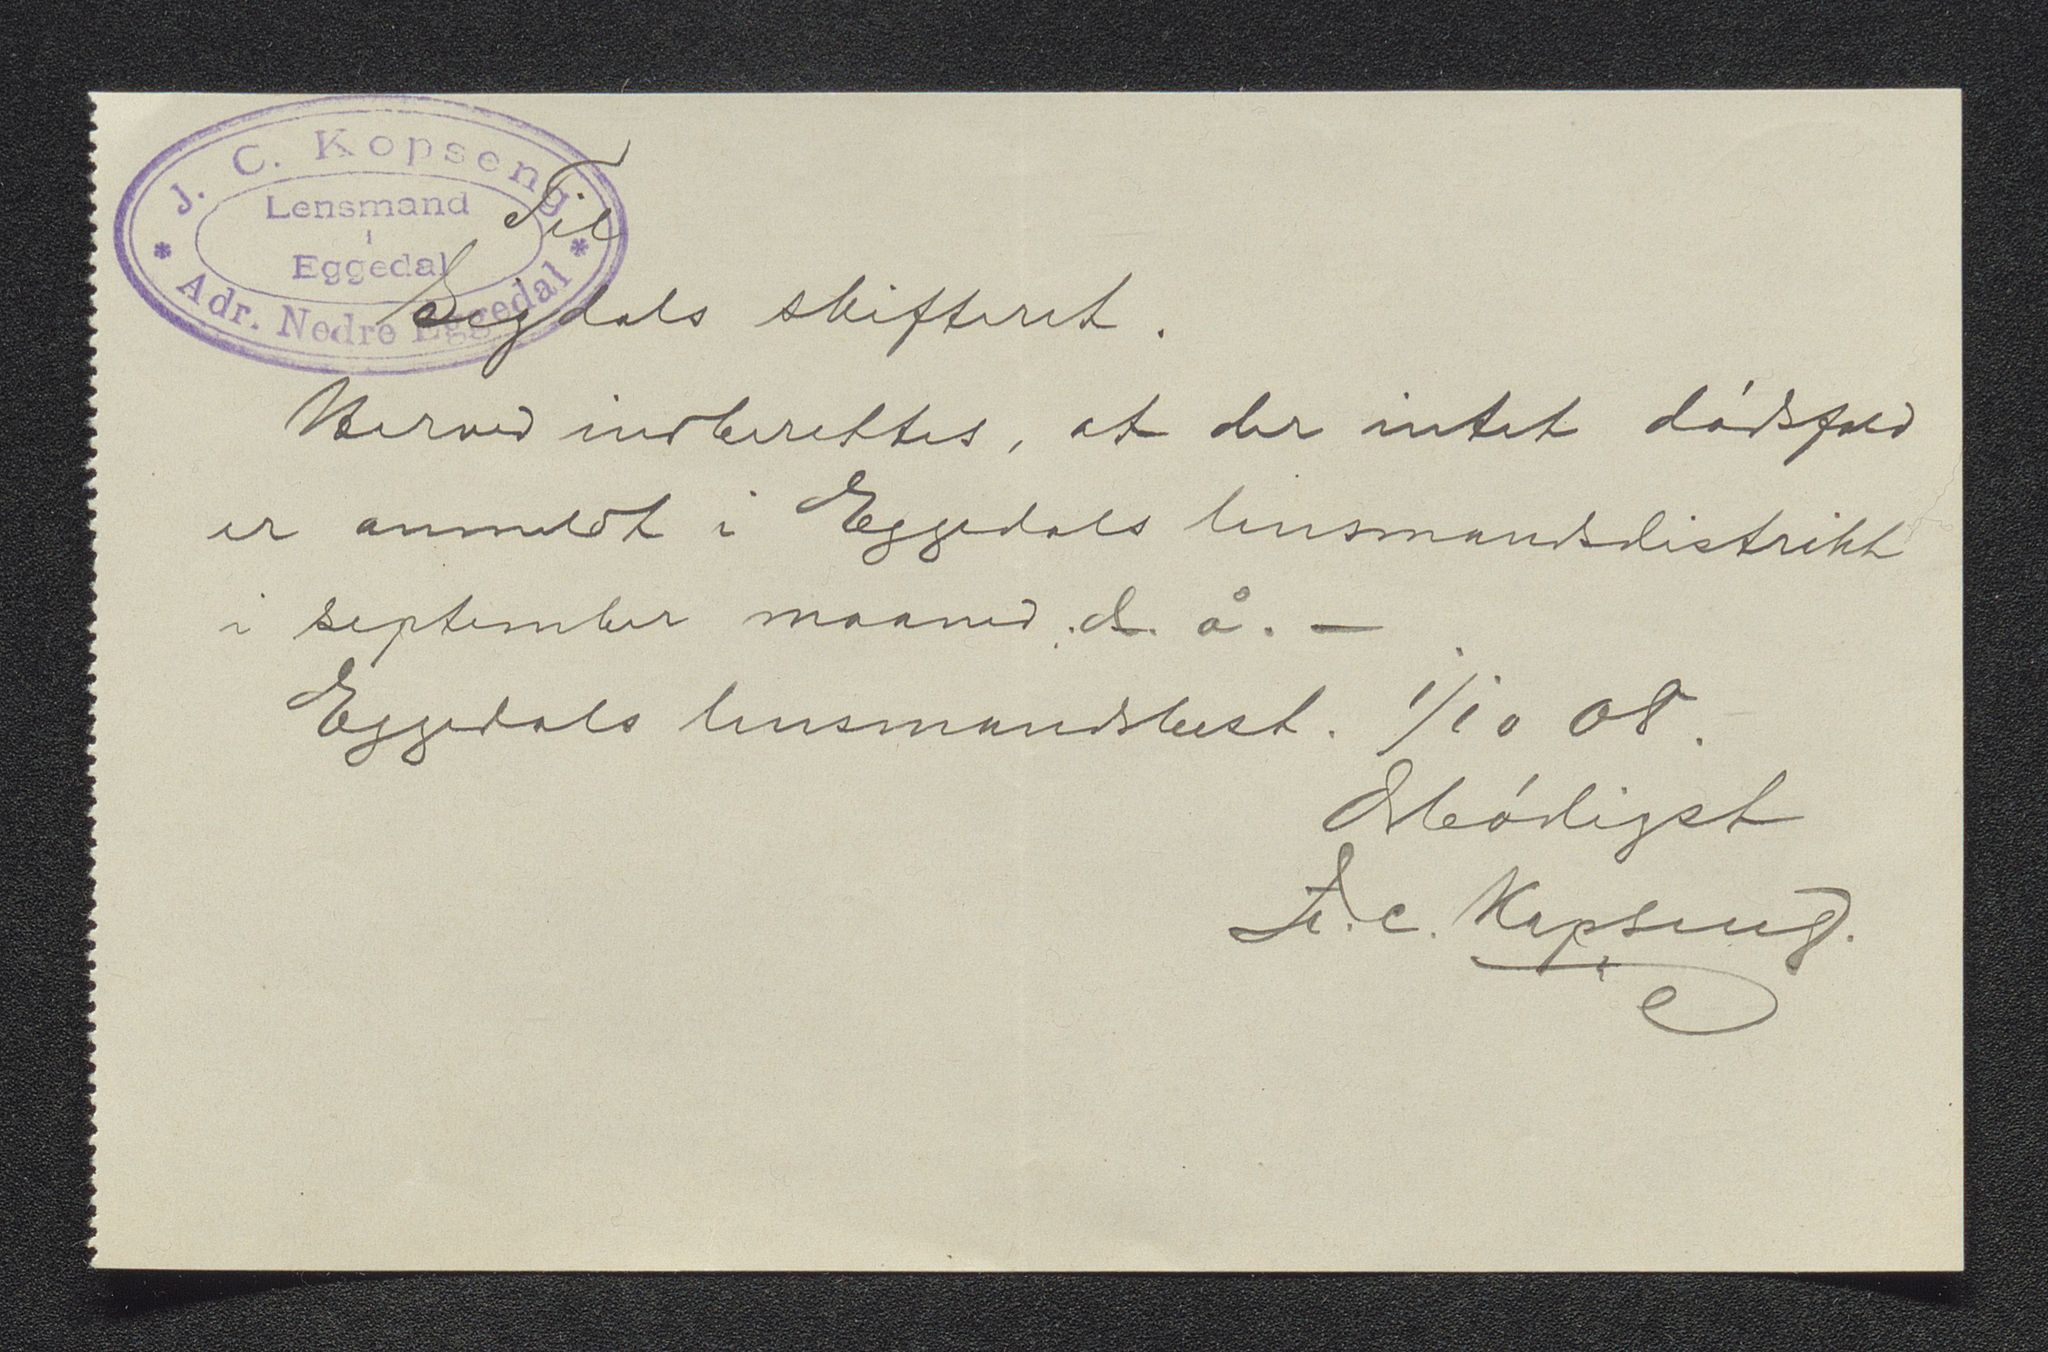 J. C. Kopseng
Lensmand
i
Eggedal
* Adr. Nedre Eggedal *
Til
Sigdals skifteret.
Herved indberettes, at der intet dødsfald
er anmeldt i Eggedals lensmandsdistrikt
i september maaned d. å. —
Eggedals lensmandsbest. 1/10 08.
Ærbødigst
J. C. Kopseng.